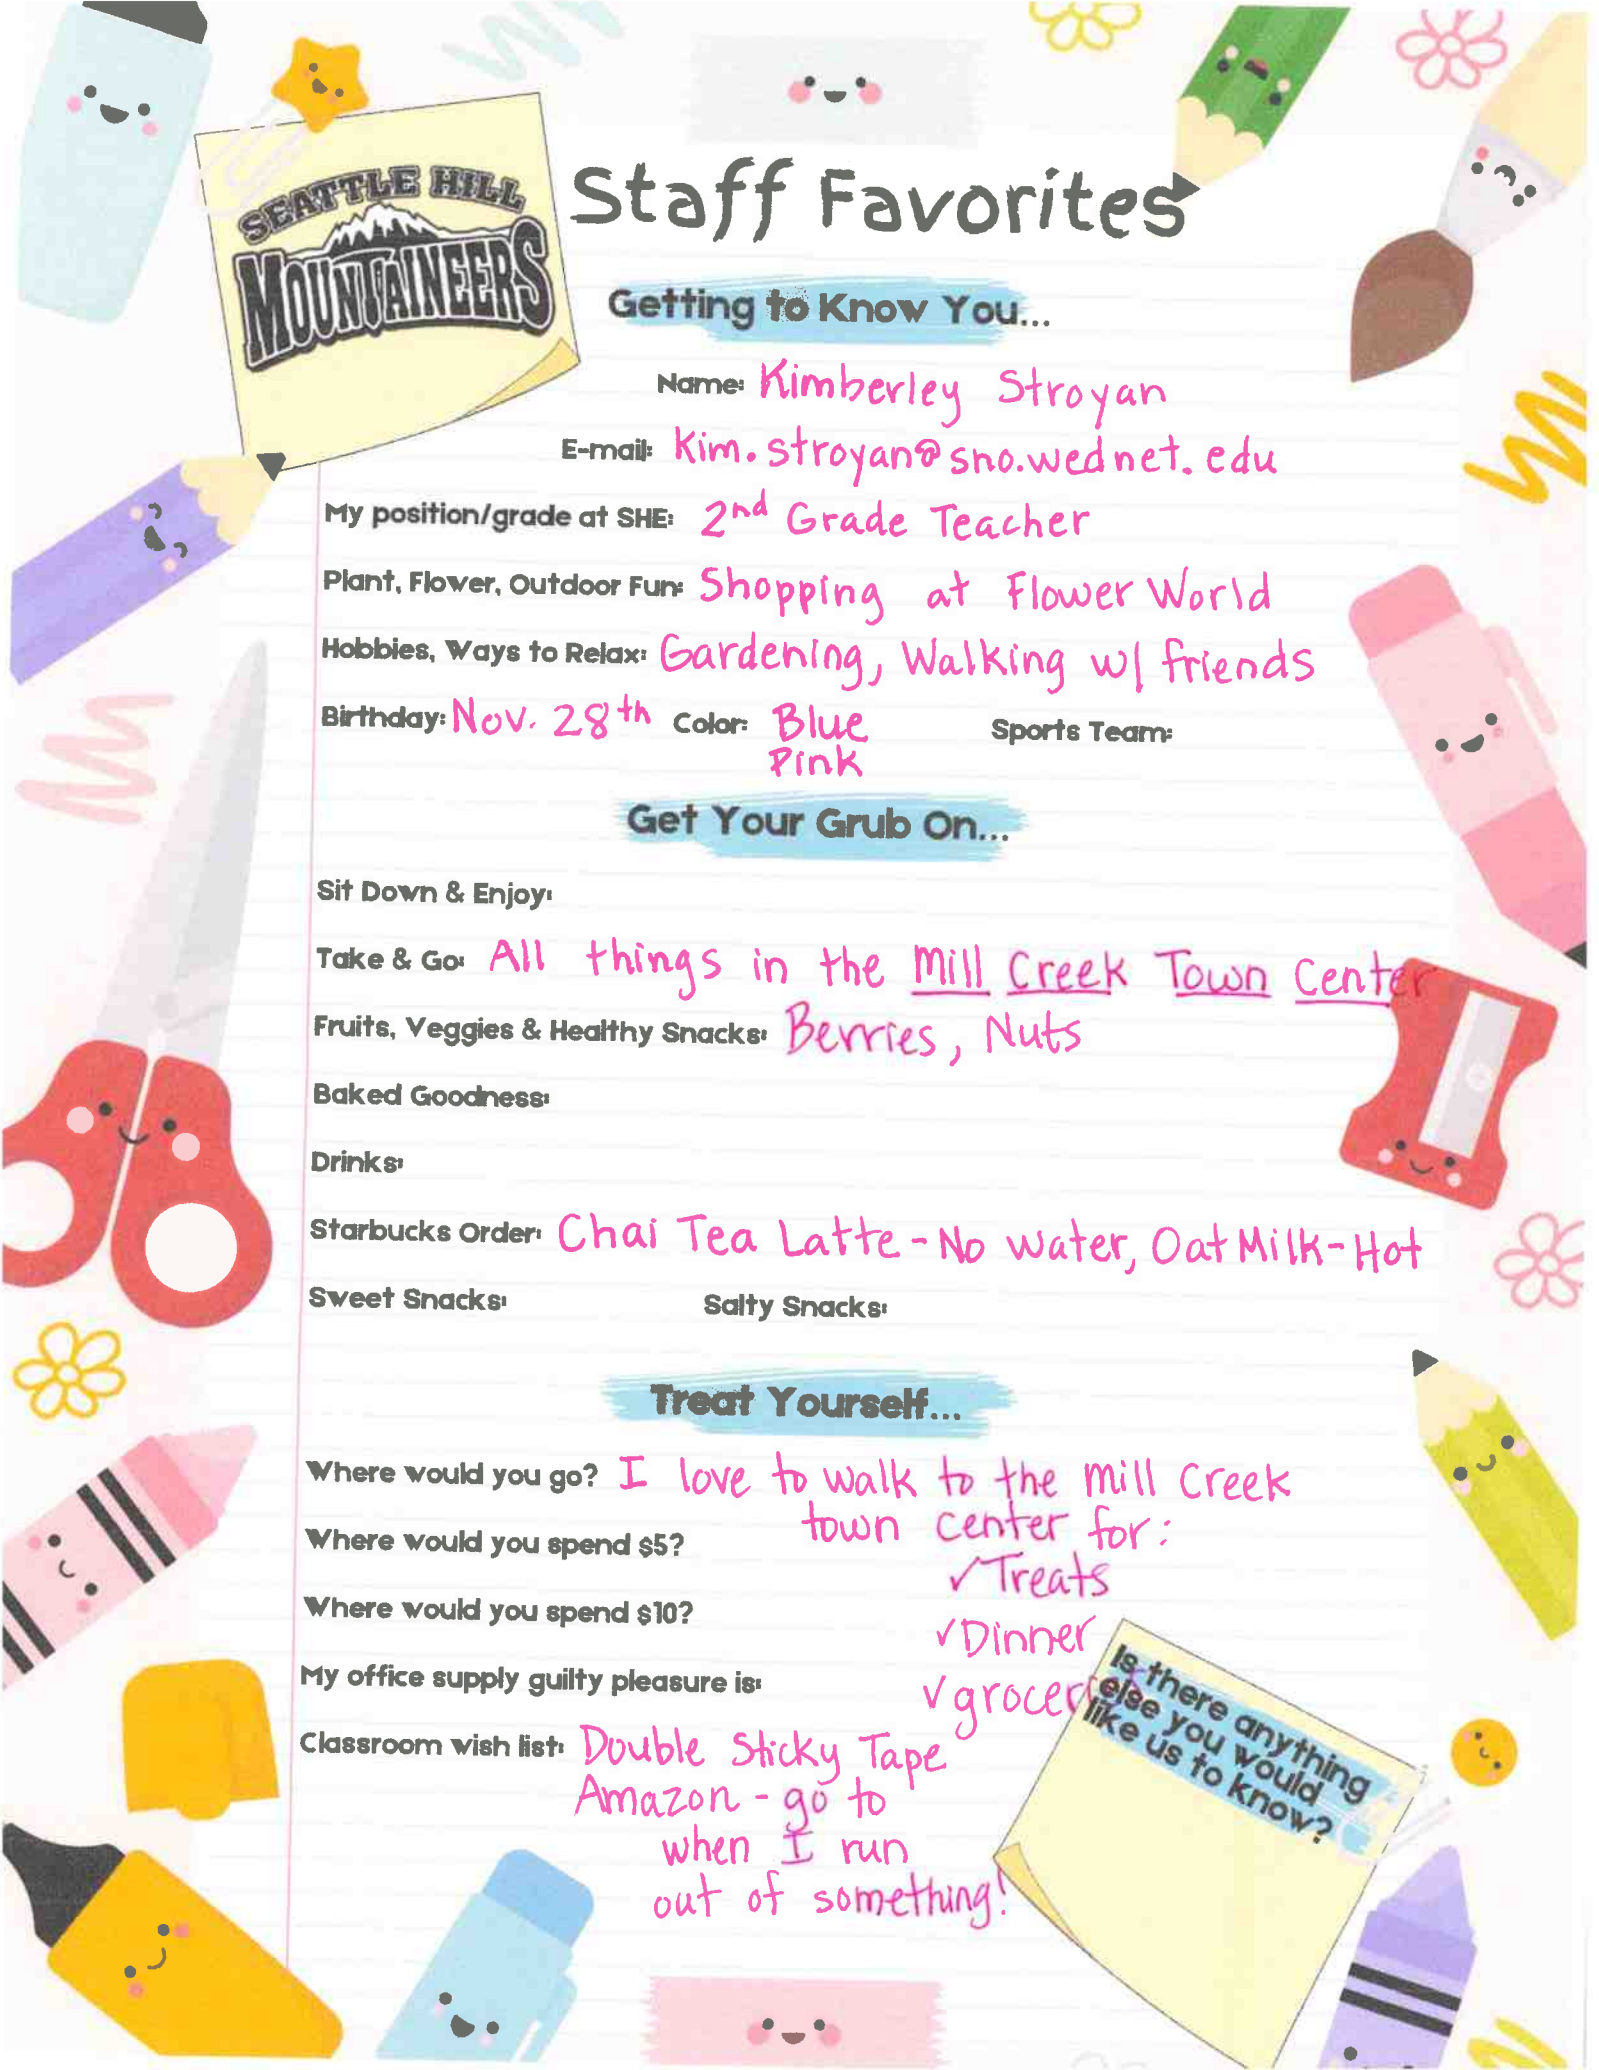 SEATTLE HILL
MOUNTAINEERS
Staff Favorites
Getting to Know You...
Name: Kimberley Stroyan
E-mail: Kim.stroyan@sno.wednet.edu
My position/grade at SHE: 2nd Grade Teacher
Plant, Flower, Outdoor Fun: Shopping at Flower World
Hobbies, Ways to Relax: Gardening, Walking w/ friends
Birthday: Nov. 28th Color: Blue Sports Team:
Pink
Get Your Grub On...
Sit Down & Enjoy:
Take & Go: All things in the Mill Creek Town Center
Fruits, Veggies & Healthy Snacks: Berries, Nuts
Baked Goodness:
Drinks:
Starbucks Order: Chai Tea Latte - No water, Oat Milk - Hot
Sweet Snacks: Salty Snacks:
Treat Yourself...
Where would you go? I love to walk to the Mill Creek
town center for:
Where would you spend $5?
✓Treats
Where would you spend $10?
✓Dinner
My office supply guilty pleasure is:
Classroom wish list: Double Sticky Tape
Amazon - go to
when I run
out of something!
Is there anything
else you would
like us to know?